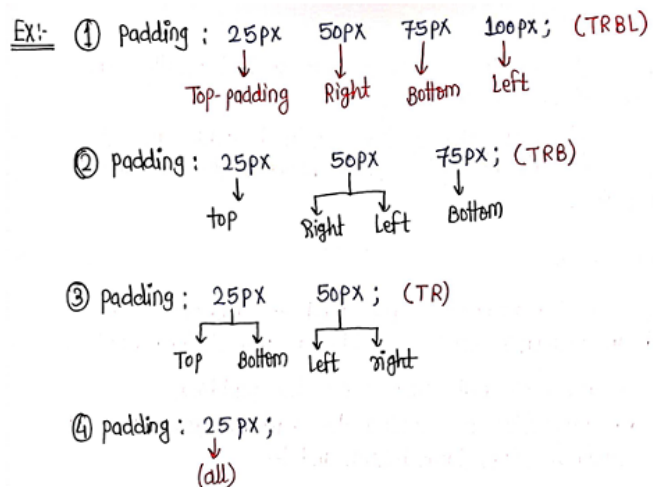 Ex:- ① Padding : 25px 50px 75px 100px; (TRBL)
Top-padding Right Bottom Left
② padding : 25px 50px 75px; (TRB)
top Right Left Bottom
③ padding : 25px 50px ; (TR)
Top Bottom Left right
④ padding : 25 px ;
(all)